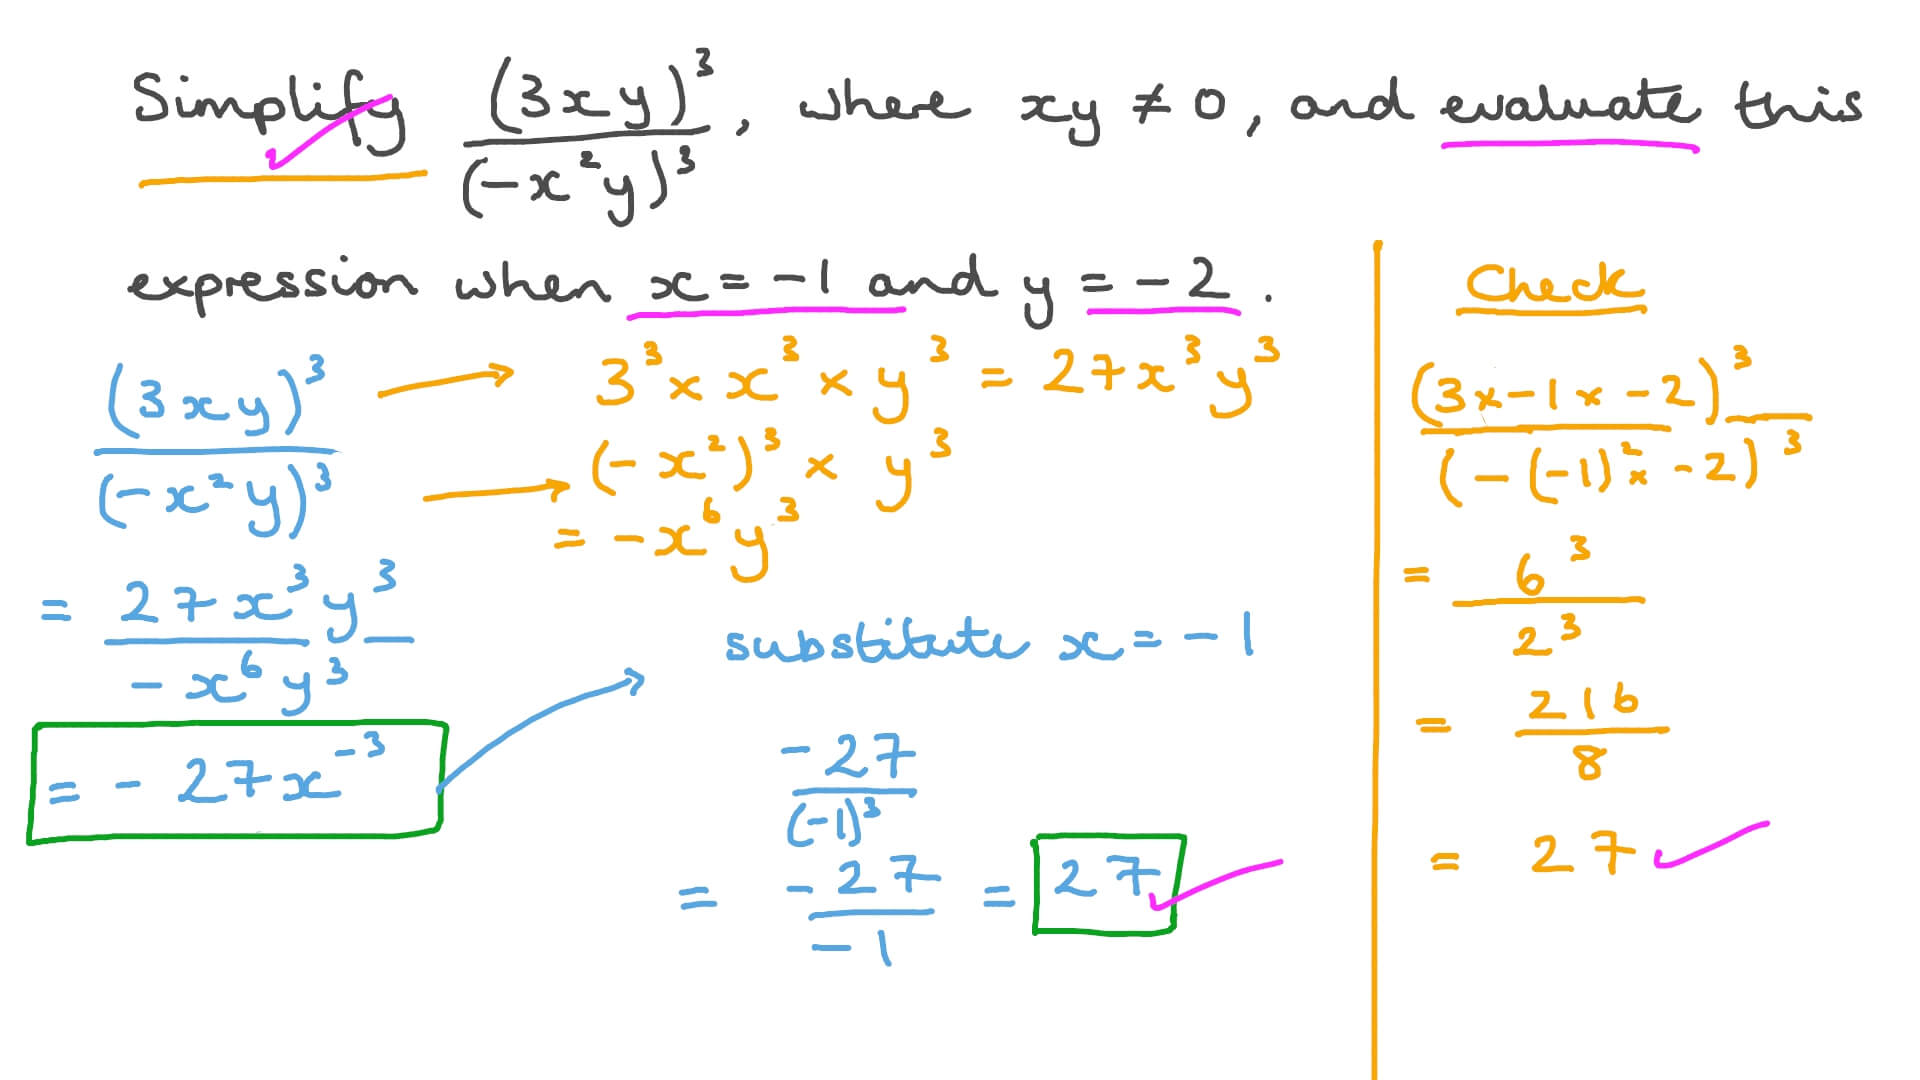 Simplify (3xy)³/(-x²y)³, where xy ≠ 0, and evaluate this
expression when x = -1 and y = -2.
(3xy)³/(-x²y)³
3³ × x³ × y³ = 27x³y³
(-x²)³ × y³
= -x⁶y³
= 27x³y³/-x⁶y³
= -27x⁻³
substitute x = -1
-27/(-1)³
= -27/-1 = 27
Check
(3×-1×-2)³/(-(-1)²×-2)³
= 6³/2³
= 216/8
= 27